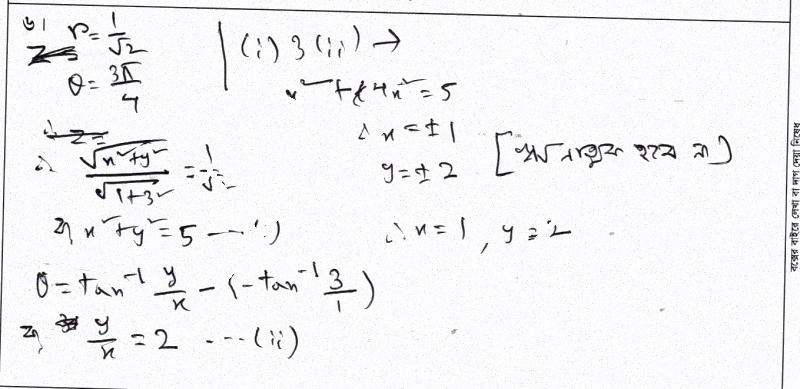 ৬। r = 1/√2
θ = 3π/4
∴ √(x²+y²)/√(1+3²) = 1/√2
বা, x²+y² = 5 --- (i)
θ = tan⁻¹ y/x - (-tan⁻¹ 3/1)
বা, y/x = 2 --- (ii)
(i) ও (ii) →
x² + 4x² = 5
∴ x = ±1
y = ±2
[ঋণাত্মক হবে না]
∴ x = 1, y = 2
বক্সের বাইরে লেখা বা দাগ দেয়া নিষেধ